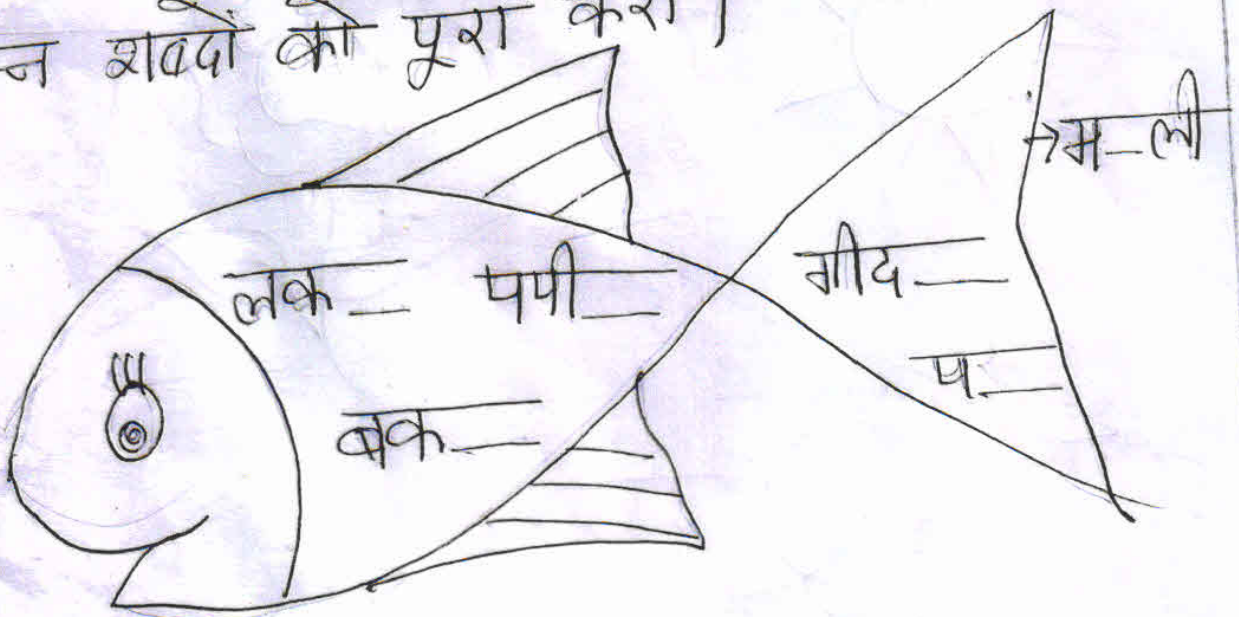 न शब्दों को पूरा करो।
म_ली
लक__ पपी__ गीद__
प__
बक__